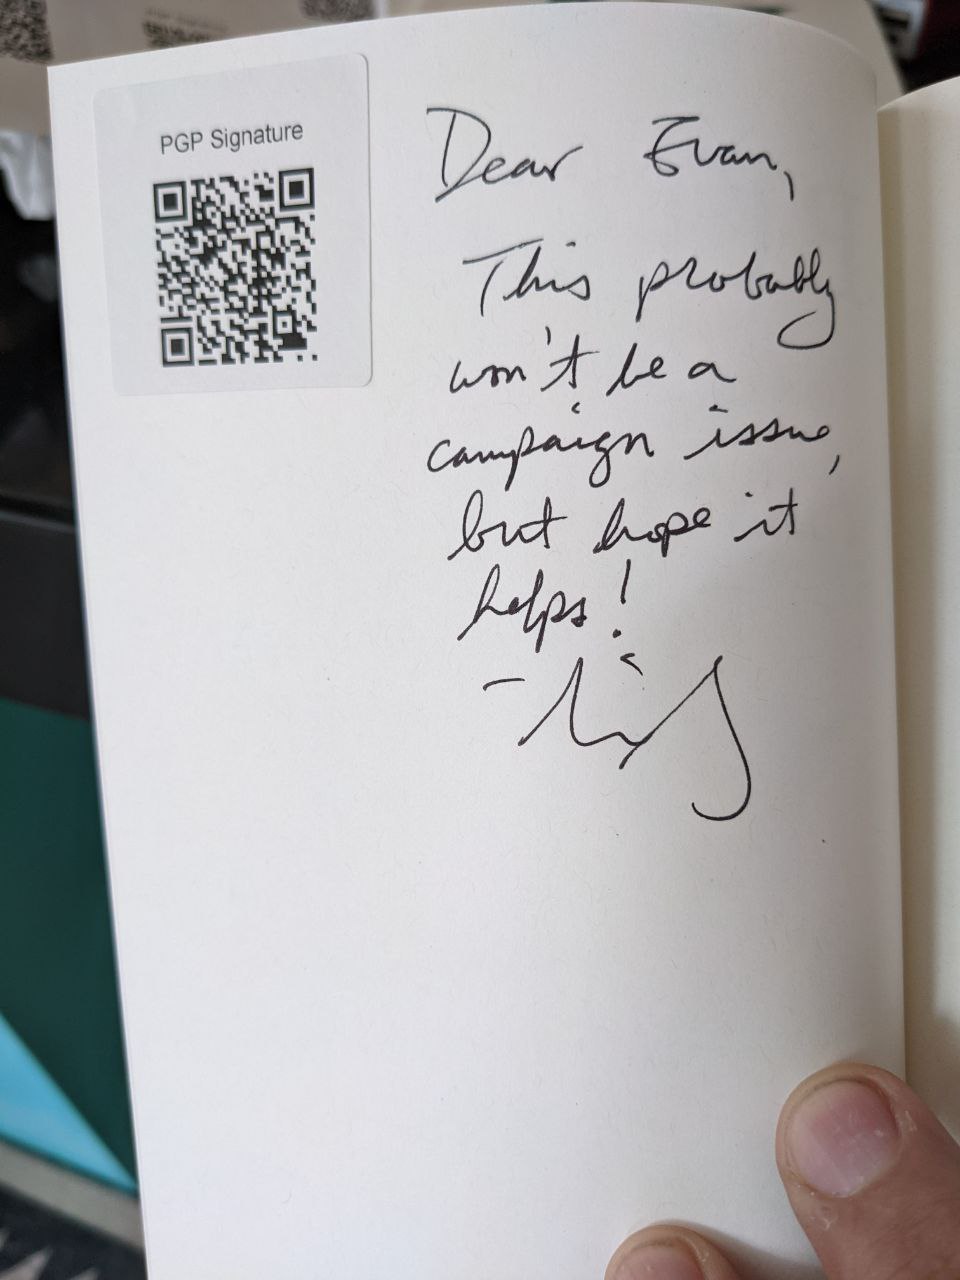 PGP Signature
Dear Evan,
This probably
won't be a
campaign issue,
but hope it
helps!